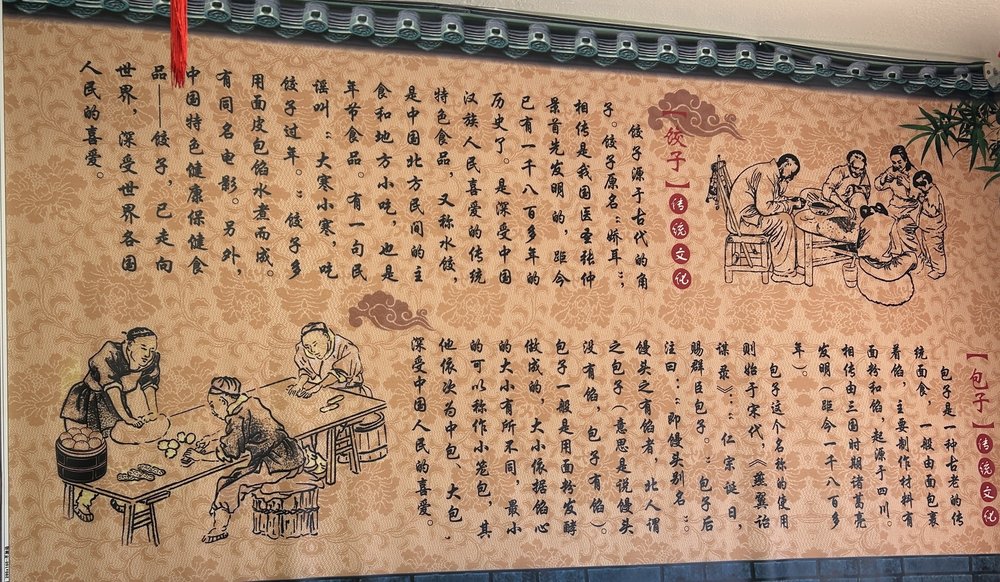 【饺子】传统文化
饺子源于古代的角
子。饺子原名:“娇耳”;
相传是我国医圣张仲
景首先发明的,距今
已有一千八百多年的
历史了。是深受中国
汉族人民喜爱的传统
特色食品,又称水饺,
是中国北方民间的主
食和地方小吃,也是
年节食品。有一句民
谣叫:“大寒小寒,吃
饺子过年。”饺子多
用面皮包馅水煮而成。
有同名电影。另外,
中国特色健康保健食
品——饺子,已走向
世界,深受世界各国
人民的喜爱。
【包子】传统文化
包子是一种古老的传
统面食,一般由面包裹
着馅,主要制作材料有
面粉和馅,起源于四川。
相传由三国时期诸葛亮
发明(距今一千八百多
年)。
包子这个名称的使用
则始于宋代,《燕翼诒
谋录》:“仁宗诞日,
赐群臣包子。”包子后
注曰:“即馒头别名”。
馒头之有馅者,北人谓
之包子(意思是说馒头
没有馅,包子有馅)。
包子一般是用面粉发酵
做成的,大小依据馅心
的大小有所不同,最小
的可以称作小笼包,其
他依次为中包、大包,
深受中国人民的喜爱。